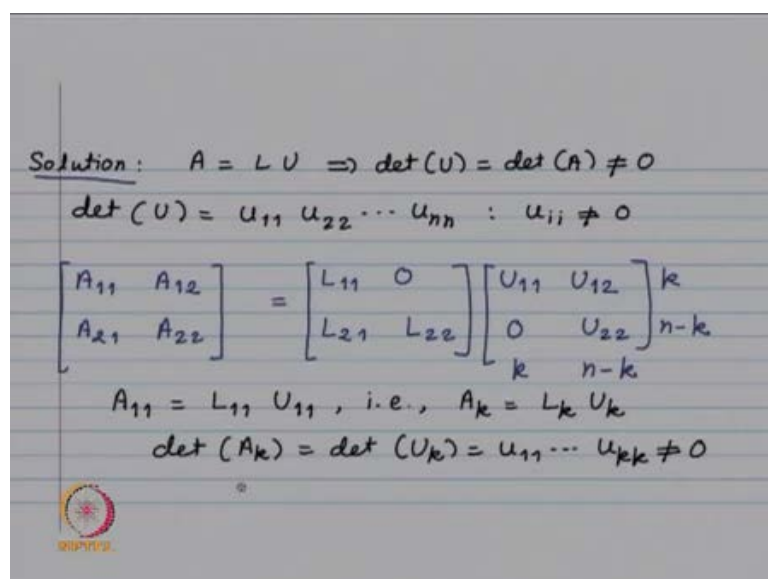 Solution: A = L U ⇒ det (U) = det (A) ≠ 0
det (U) = u11 u22 ... unn : uii ≠ 0
[A11 A12] = [L11 0] [U11 U12] k
[A21 A22] [L21 L22] [0 U22] n-k
k n-k
A11 = L11 U11, i.e., Ak = Lk Uk
det (Ak) = det (Uk) = u11 ... ukk ≠ 0
NPTEL